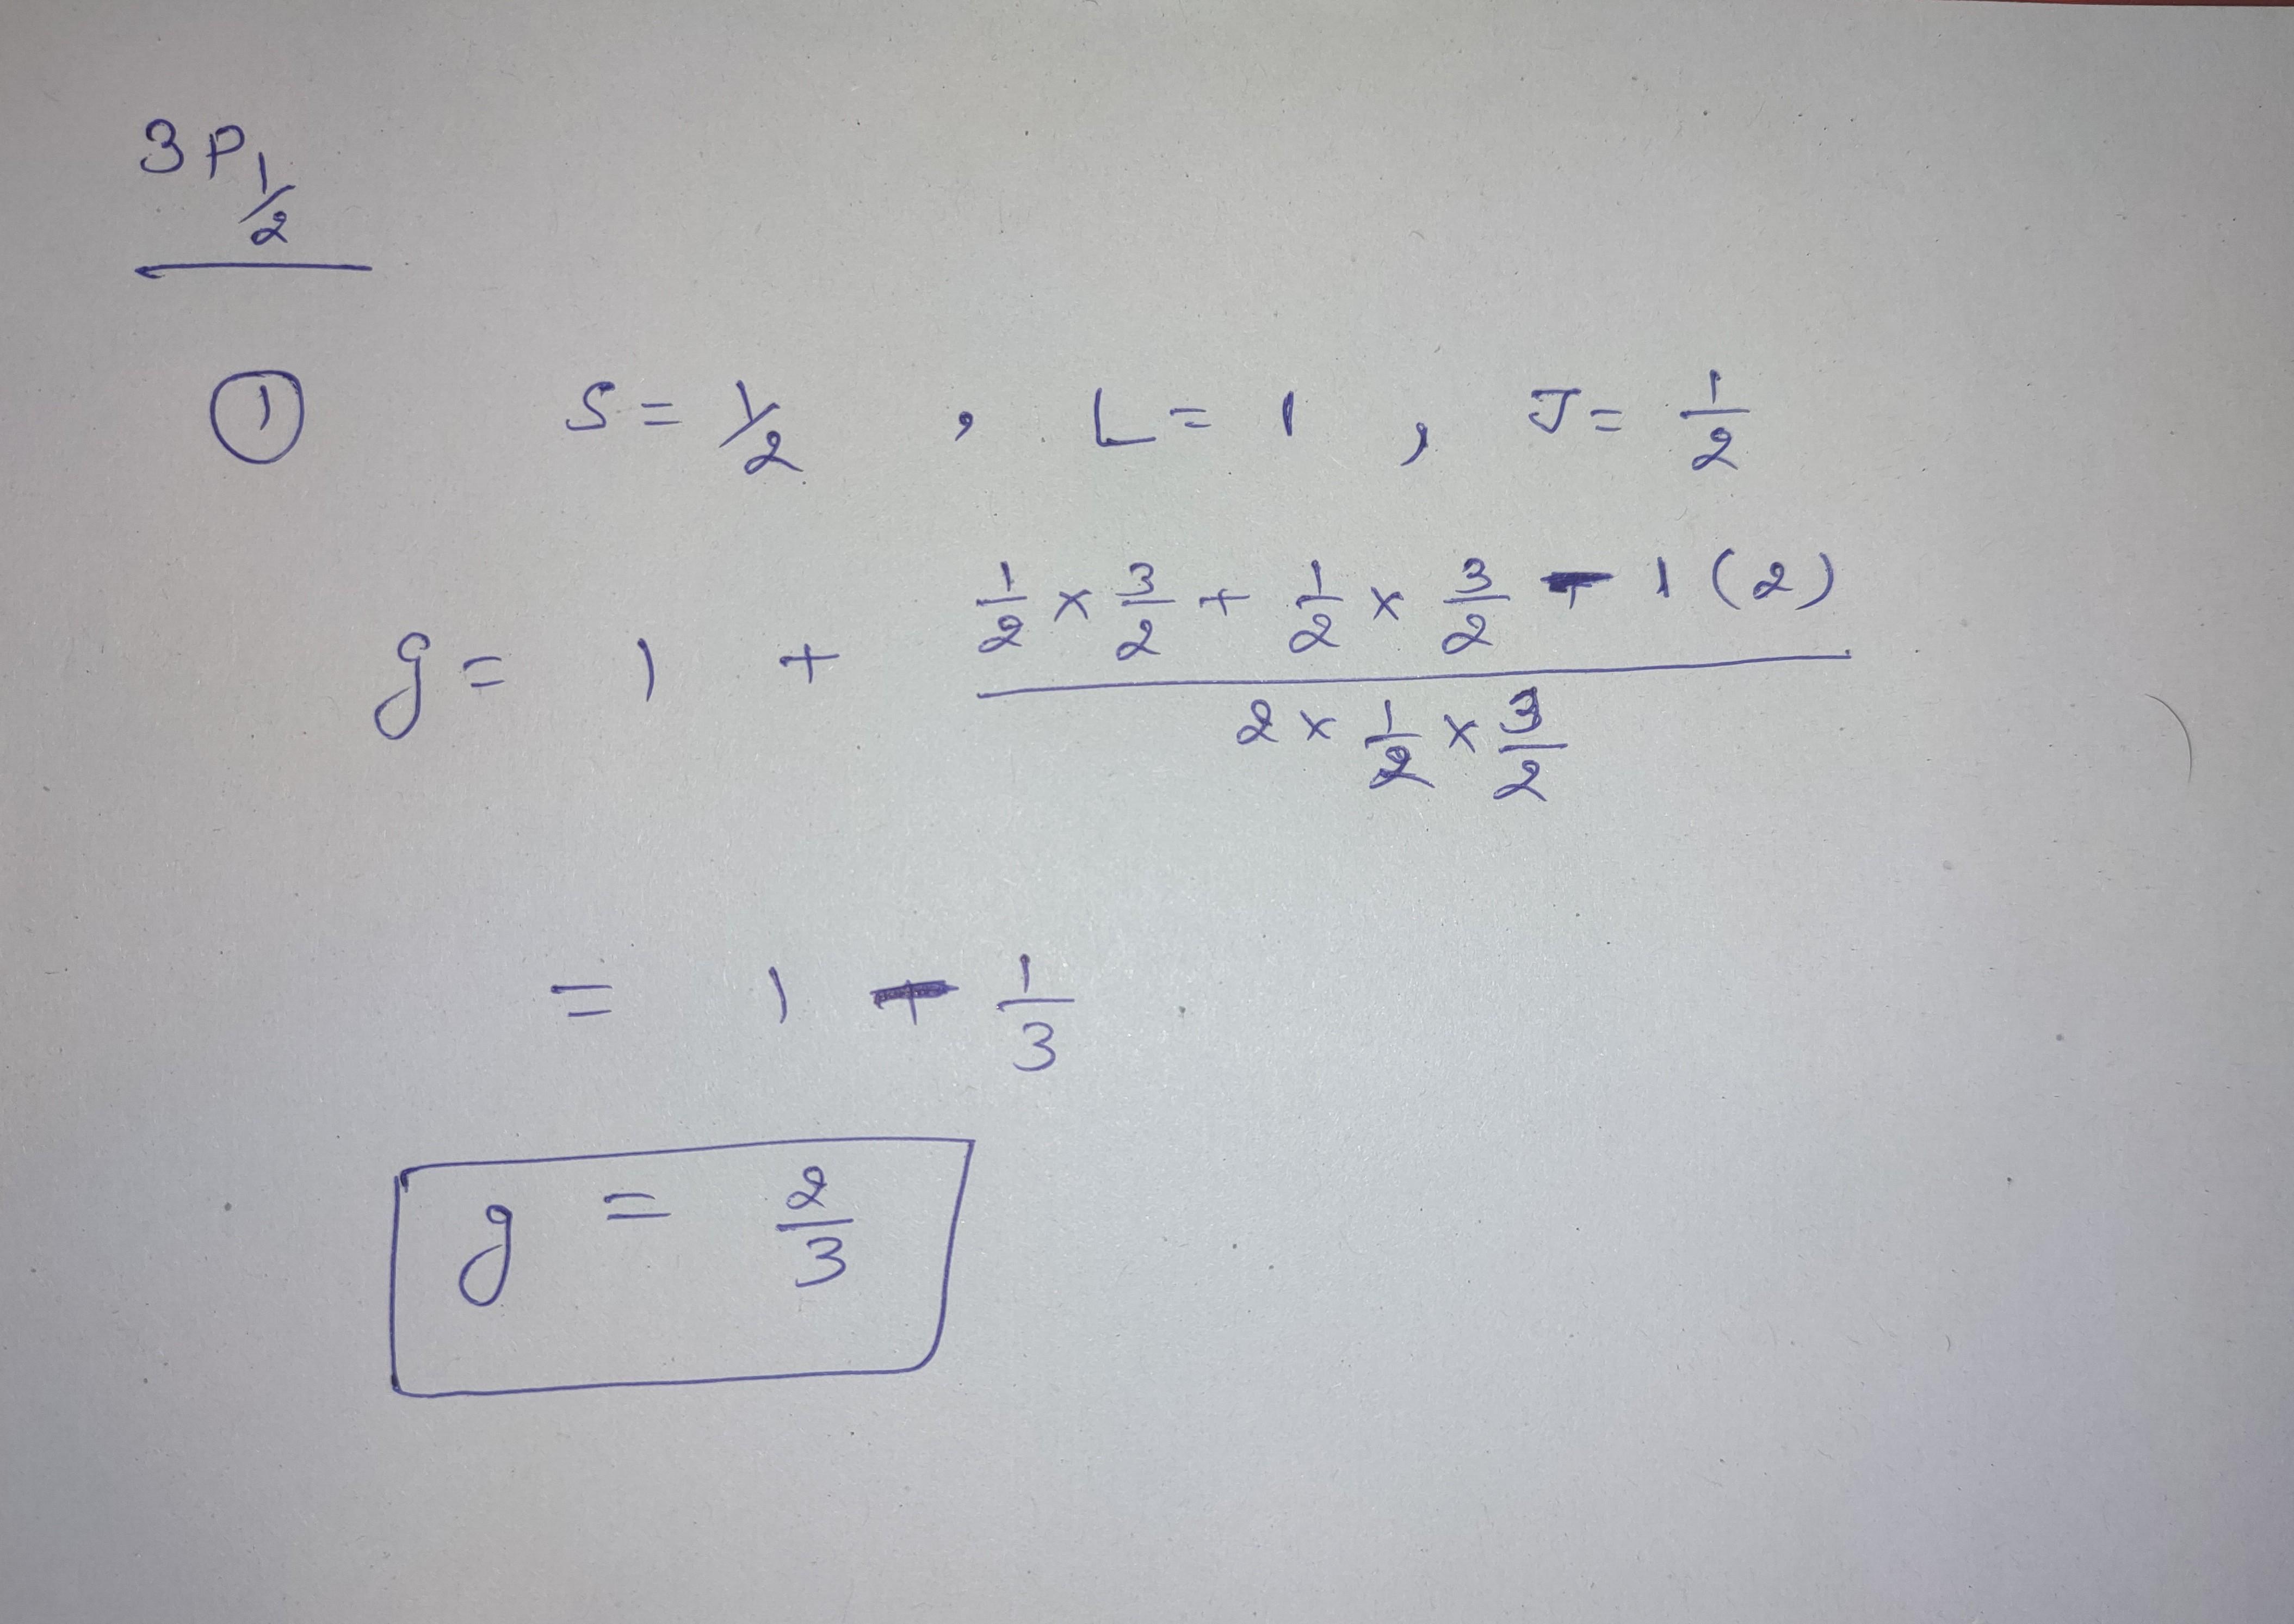 3P1/2
① S = 1/2 , L = 1 , J = 1/2
g = 1 + (1/2 × 3/2 + 1/2 × 3/2 - 1(2)) / (2 × 1/2 × 3/2)
= 1 - 1/3
g = 2/3